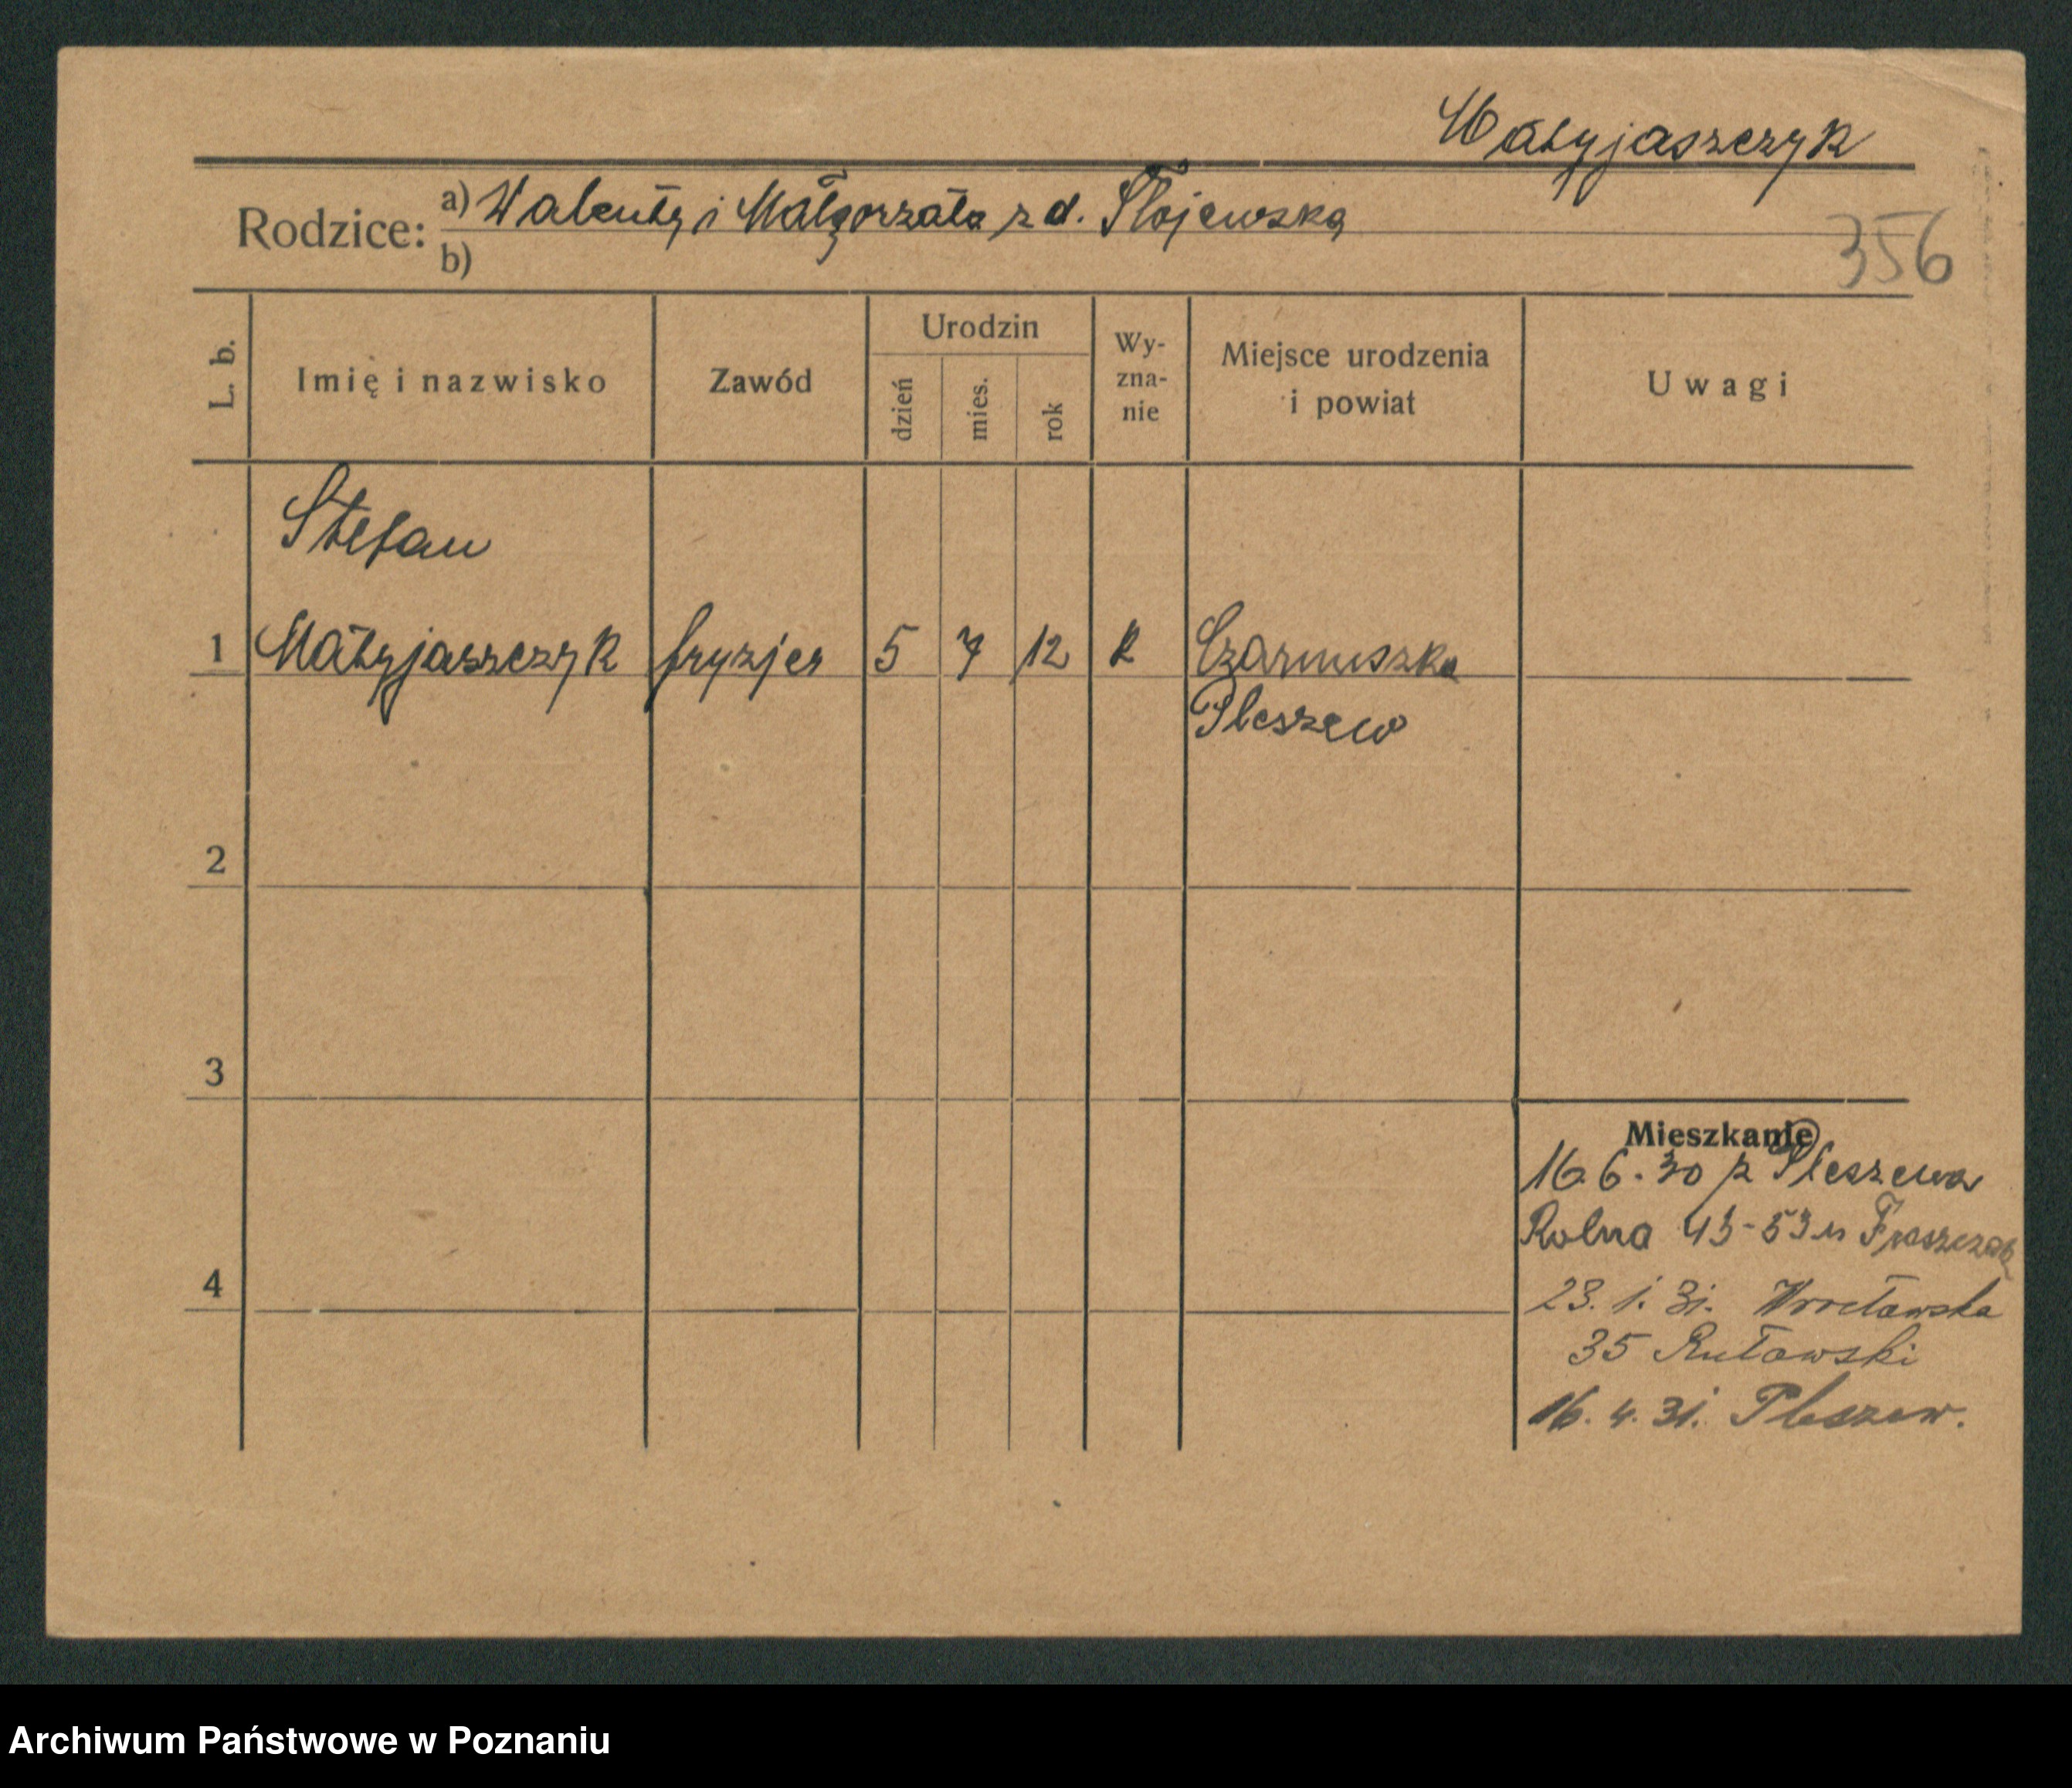 Matyjaszczyk
Rodzice: a) Walenty i Małgorzata z d. Stojewska
b)
356
L. b.
Imię i nazwisko
Zawód
Urodzin
dzień
mies.
rok
Wy-
zna-
nie
Miejsce urodzenia
i powiat
Uwagi
Stefan
1 Matyjaszczyk fryzjer 5 7 12 R Czarnuszka
Pleszew
2
3
Mieszkanie
16.6.30 z Pleszewa
Rolna 43-53 m
4
23.1.31. Wrocławska
35 Rutowski
16.4.31. Pleszew.
Archiwum Państwowe w Poznaniu